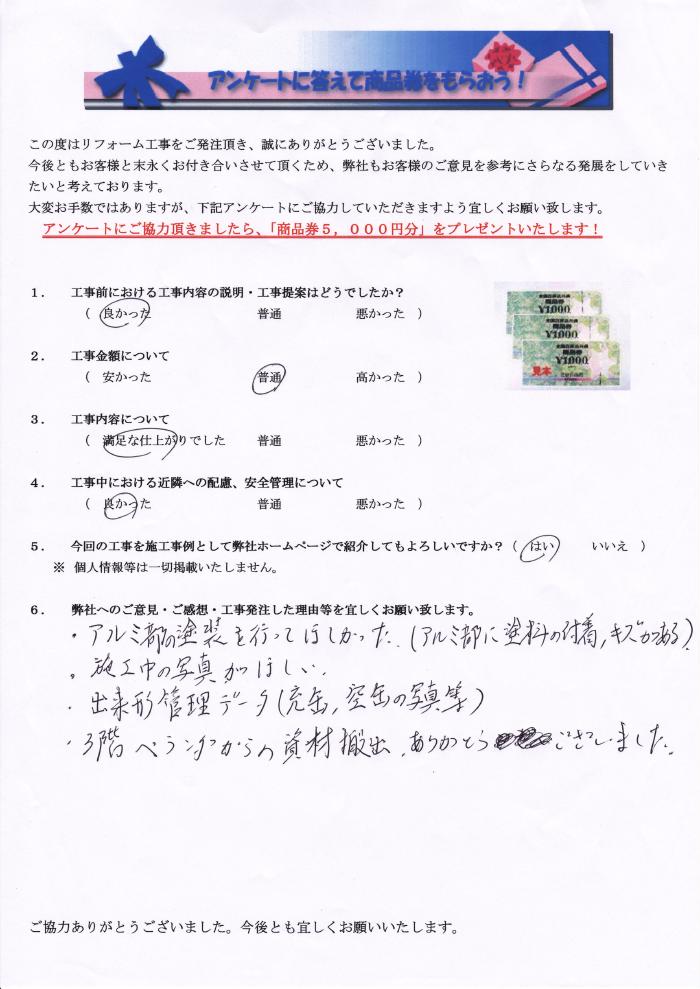 アンケートに答えて商品券をもらおう！
この度はリフォーム工事をご発注頂き、誠にありがとうございました。
今後ともお客様と末永くお付き合いさせて頂くため、弊社もお客様のご意見を参考にさらなる発展をしていき
たいと考えております。
大変お手数ではありますが、下記アンケートにご協力していただきますよう宜しくお願い致します。
アンケートにご協力頂きましたら、「商品券５，０００円分」をプレゼントいたします！
１． 工事前における工事内容の説明・工事提案はどうでしたか？
（ 良かった 普通 悪かった ）
商品券
¥1,000
商品券
¥1,000
商品券
¥1,000
見本
２． 工事金額について
（ 安かった 普通 高かった ）
３． 工事内容について
（ 満足な仕上がりでした 普通 悪かった ）
４． 工事中における近隣への配慮、安全管理について
（ 良かった 普通 悪かった ）
５． 今回の工事を施工事例として弊社ホームページで紹介してもよろしいですか？（ はい いいえ ）
※ 個人情報等は一切掲載いたしません。
６． 弊社へのご意見・ご感想・工事発注した理由等を宜しくお願い致します。
・アルミ部の塗装を行ってほしかった。(アルミ部に塗料の付着，キズがある)
・施工中の写真がほしい。
・出来形管理データ(充缶，空缶の写真等)
・3階ベランダからの資材搬出、ありがとうございました。
ご協力ありがとうございました。今後とも宜しくお願いいたします。